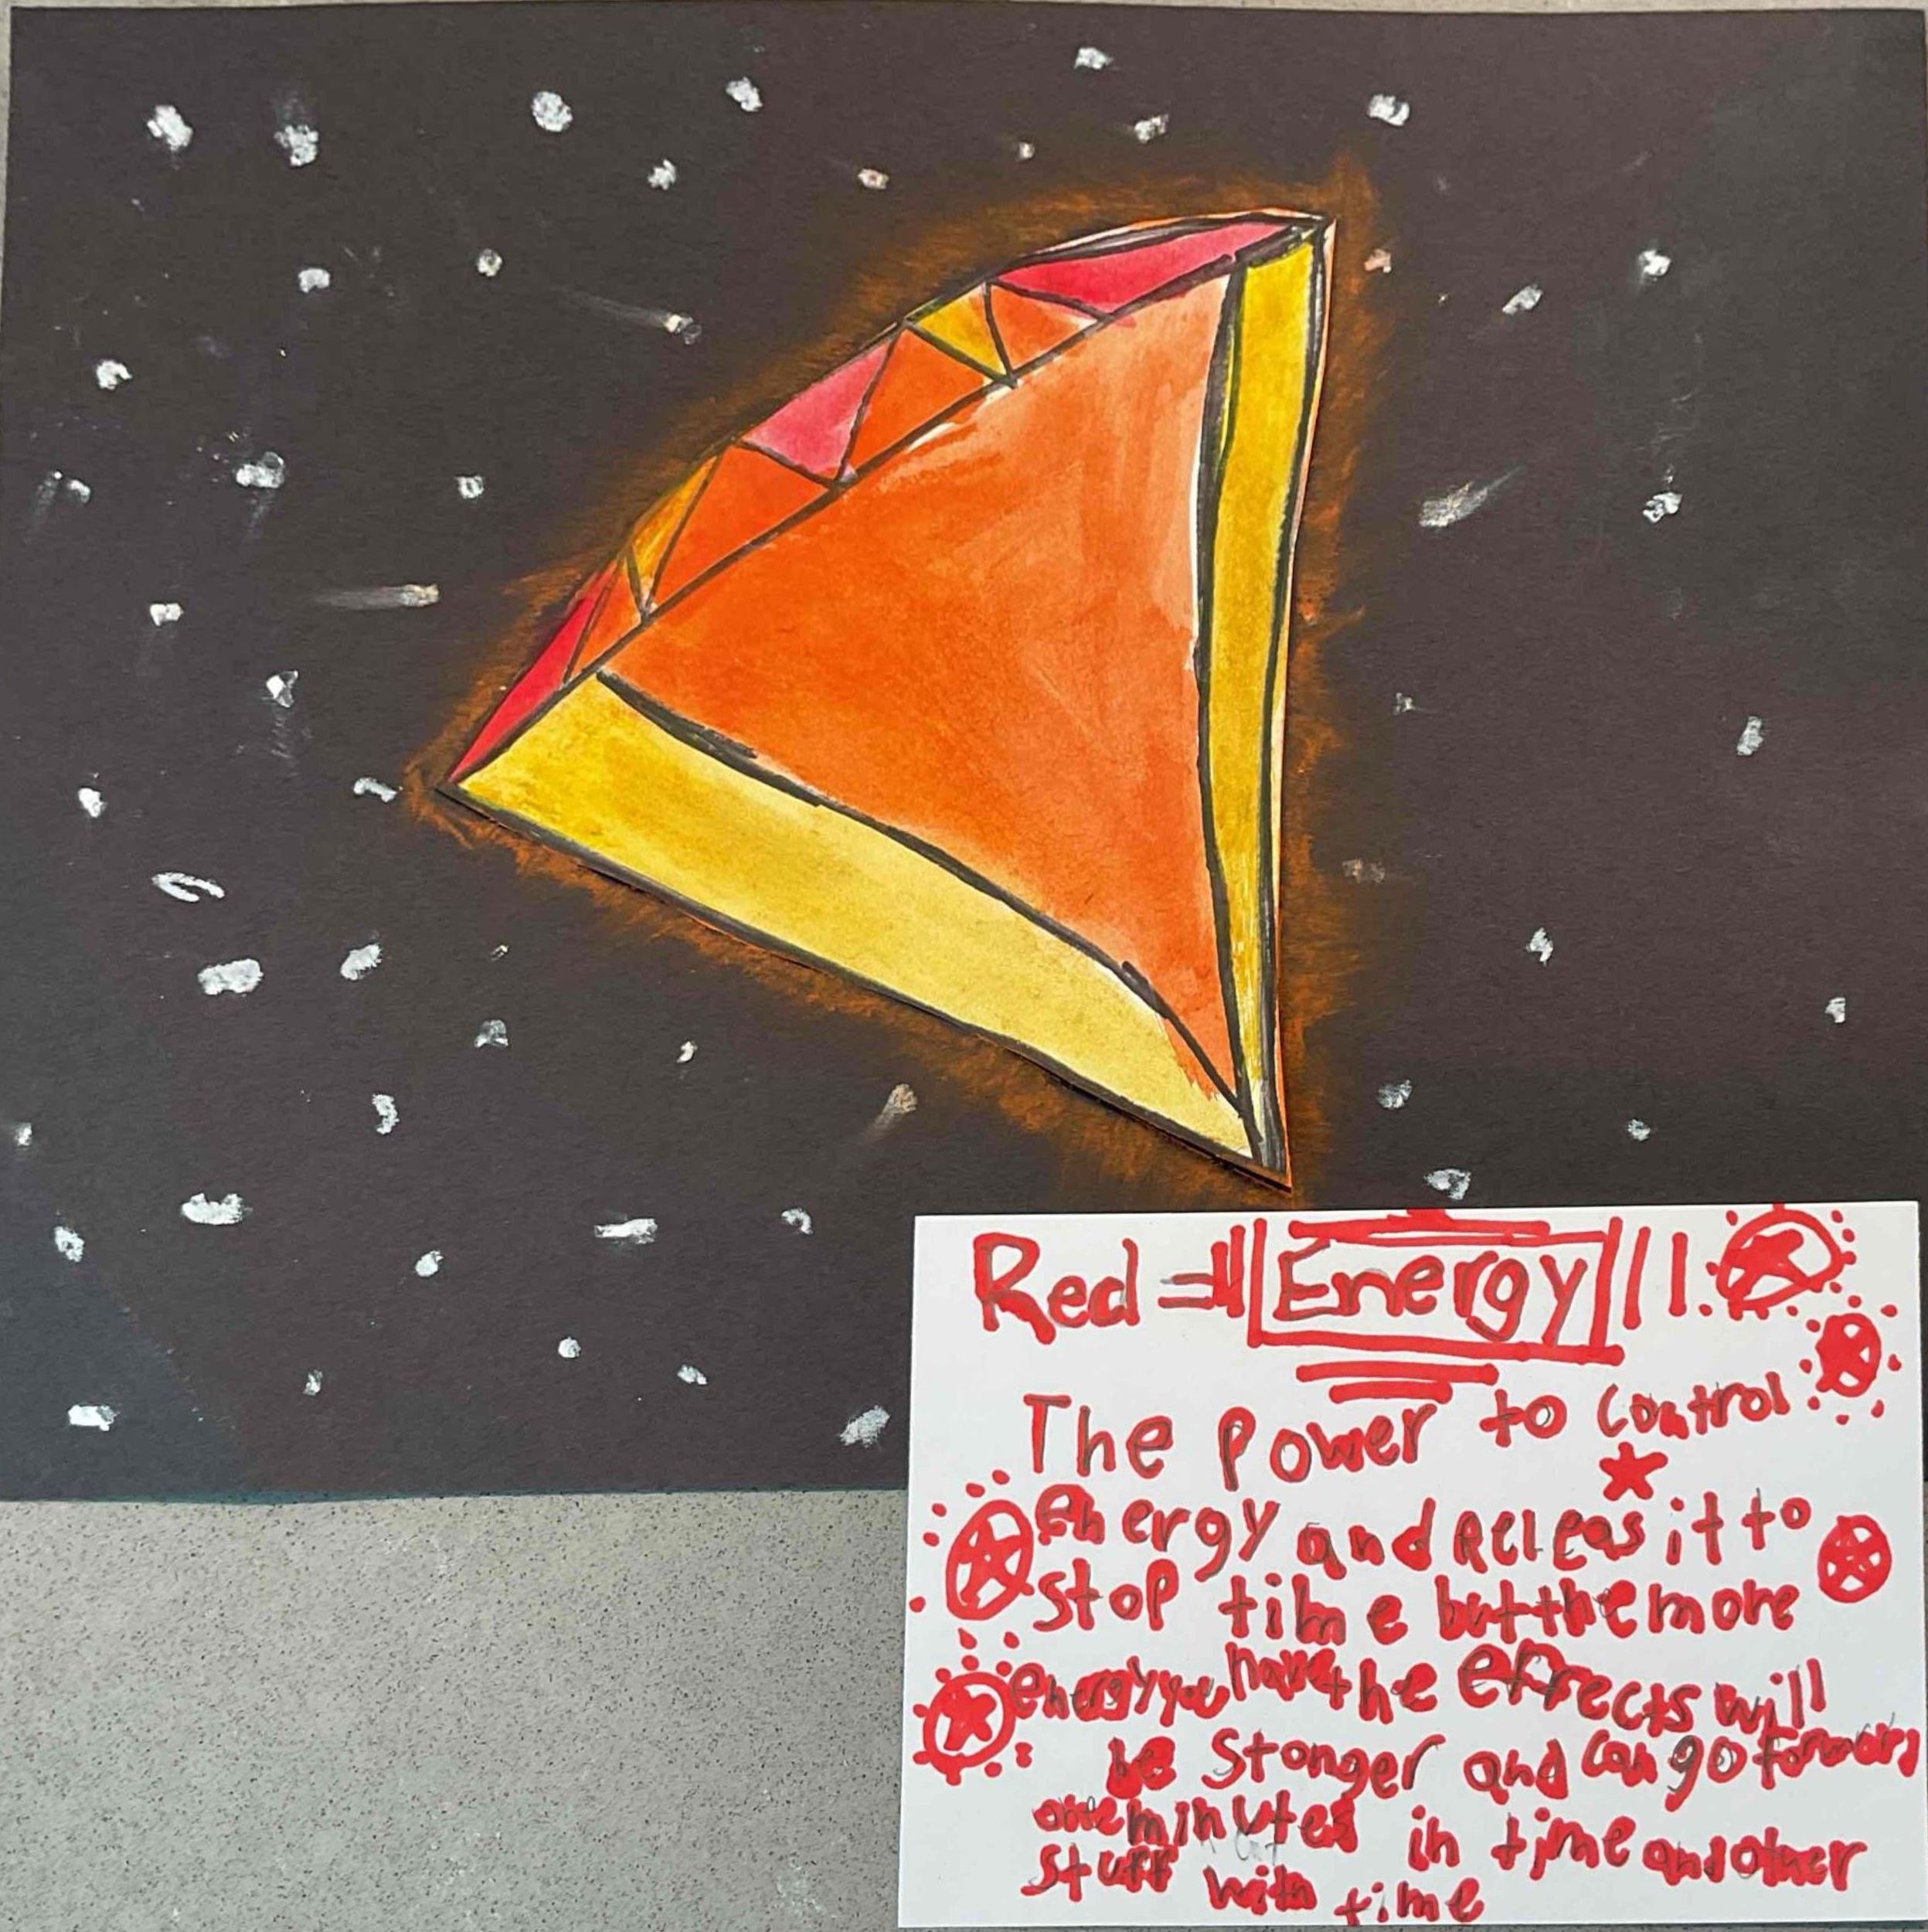 Red = Energy
The Power to control
energy and Releas it to
stop time but the more
energy you have the effects will
be Stonger and can go forward
one minutes in time and other
stuff with time